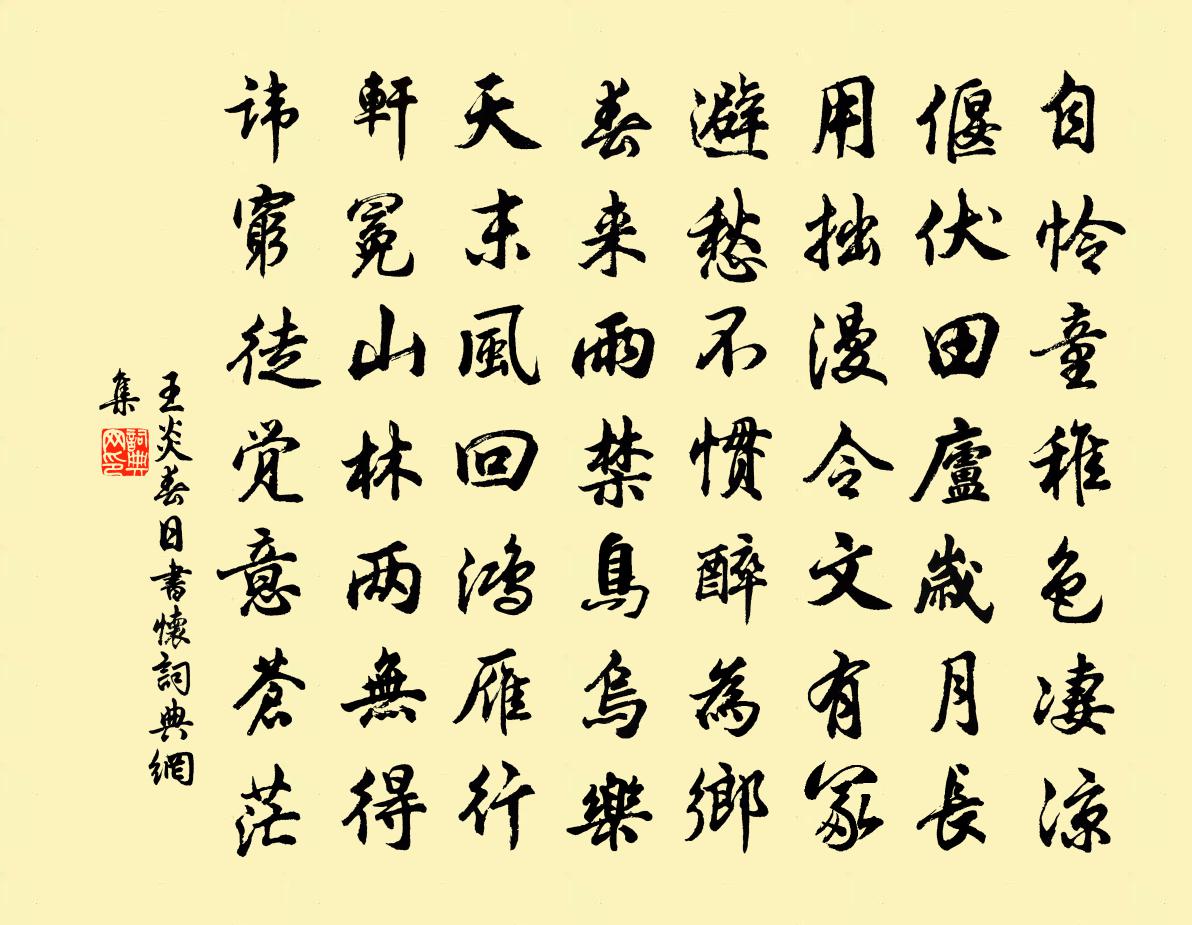 自怜童稚色凄凉
偃伏田廬歳月長
用拙漫令文有冢
避愁不慣醉為鄉
春来雨禁鳥烏樂
天末風回鴻雁行
軒冕山林两無得
諱窮徒覚意蒼茫
王炎春日書懷詞典網
集
詞典
网印